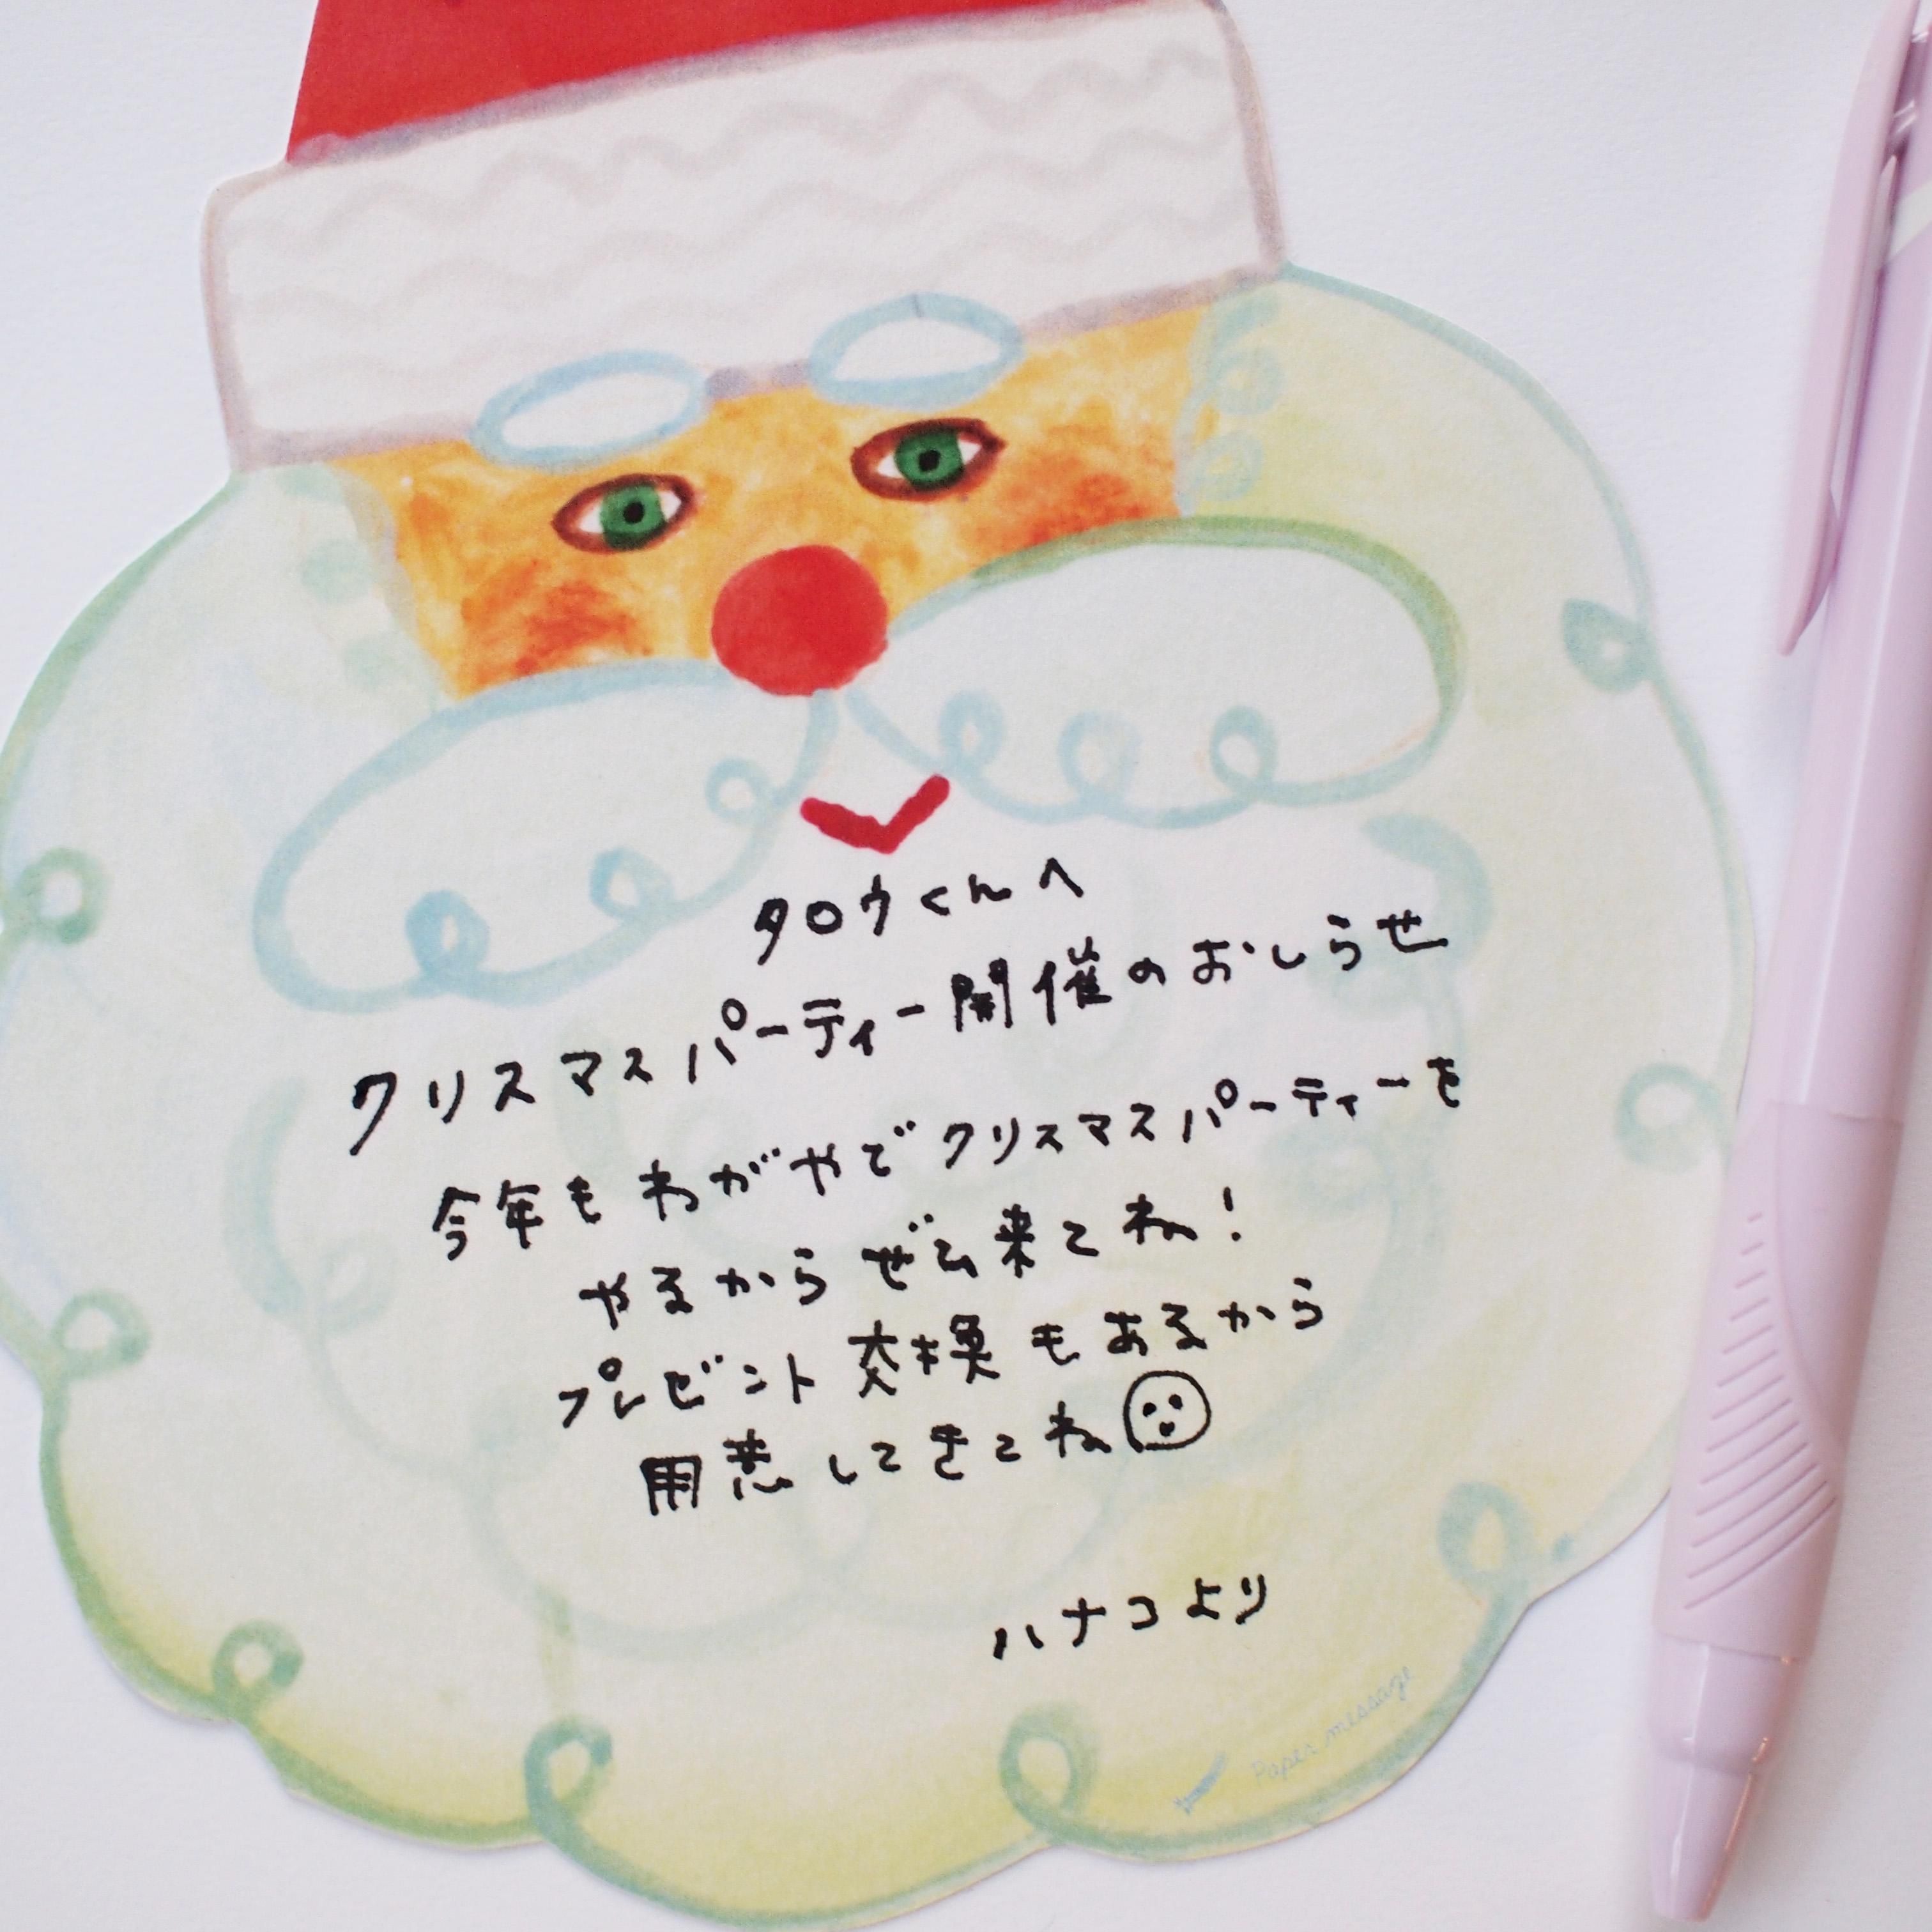 タロウくんへ
クリスマスパーティー開催のおしらせ
今年もわがやでクリスマスパーティーを
やるからぜひ来てね!
プレゼント交換もあるから
用意してきてね
ハナコより
Paper message